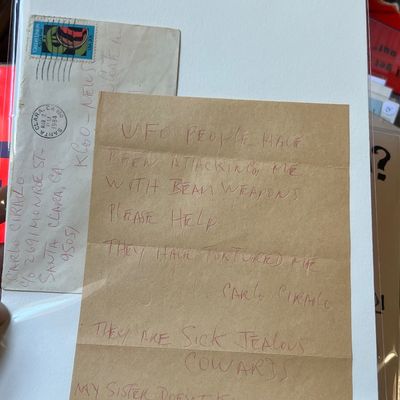 KGO - NEWS
SANTA CLARA, CA
CARLO CIRAULO
C/O 2691 MONROE ST.
SANTA CLARA, CA
95051
UFO PEOPLE HAVE
BEEN ATTACKING ME
WITH BEAM WEAPONS
PLEASE HELP
THEY HAVE TORTURED ME
CARLO CIRAULO
THEY ARE SICK JEALOUS
COWARDS
MY SISTER
?